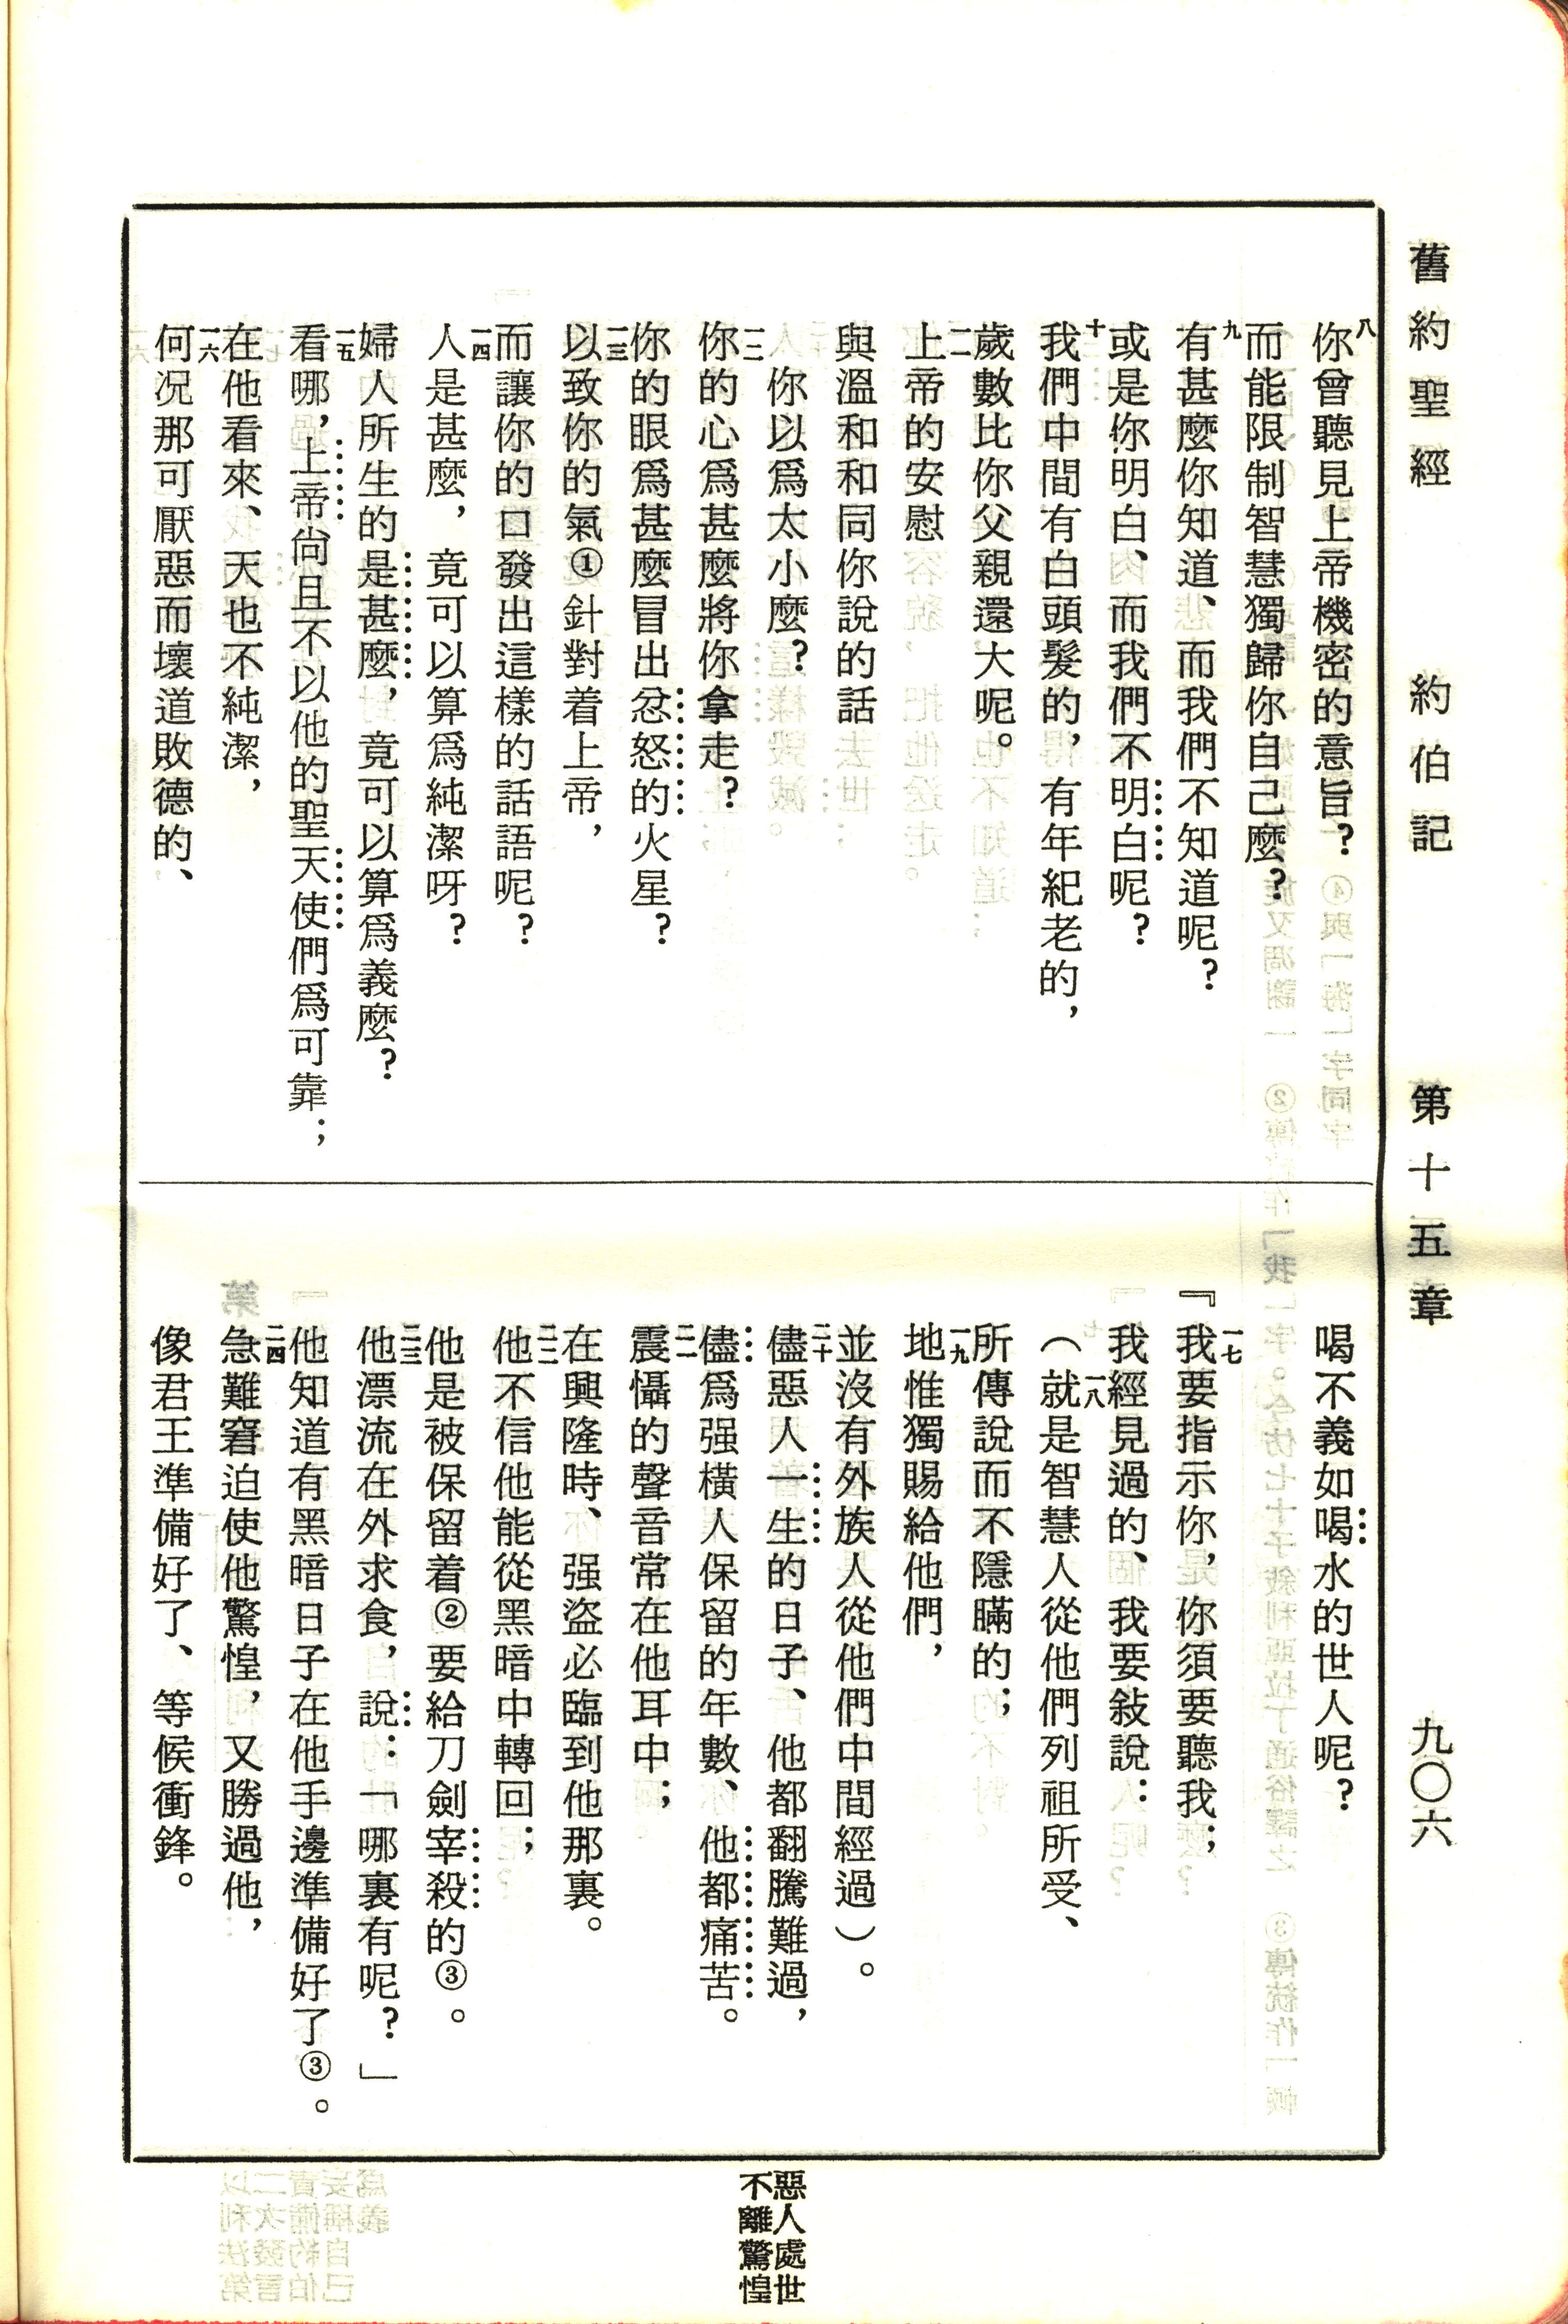 舊約聖經　約伯記　第十五章　九〇六
八你曾聽見上帝機密的意旨？
而能限制智慧獨歸你自己麼？
九有甚麼你知道、而我們不知道呢？
或是你明白、而我們不明白呢？
十我們中間有白頭髮的，有年紀老的，
歲數比你父親還大呢。
一一上帝的安慰
與溫和和同你說的話
你以爲太小麼？
一二你的心爲甚麼將你拿走？
你的眼爲甚麼冒出忿怒的火星？
一三以致你的氣①針對着上帝，
而讓你的口發出這樣的話語呢？
一四人是甚麼，竟可以算爲純潔呀？
婦人所生的是甚麼，竟可以算爲義麼？
一五看哪，上帝尙且不以他的聖天使們爲可靠；
在他看來、天也不純潔，
一六何况那可厭惡而壞道敗德的、
喝不義如喝水的世人呢？
一七『我要指示你，你須要聽我；
我經見過的、我要敍說：
一八（就是智慧人從他們列祖所受、
所傳說而不隱瞞的；
一九地惟獨賜給他們，
並沒有外族人從他們中間經過）。
二十儘惡人一生的日子、他都翻騰難過，
儘爲强橫人保留的年數、他都痛苦。
二一震懾的聲音常在他耳中；
在興隆時、强盜必臨到他那裏。
二二他不信他能從黑暗中轉回；
他是被保留着②要給刀劍宰殺的③。
二三他漂流在外求食，說：「哪裏有呢？」
他知道有黑暗日子在他手邊準備好了③。
二四急難窘迫使他驚惶，又勝過他，
像君王準備好了、等候衝鋒。
惡人處世
不離驚惶